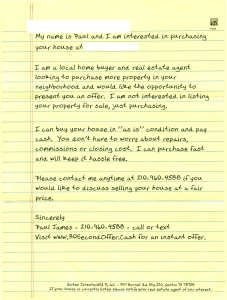 My name is Paul and I am interested in purchasing
your house at
I am a local home buyer and real estate agent
looking to purchase more property in your
neighborhood and would like the opportunity to
present you an offer. I am not interested in listing
your property for sale, just purchasing.
I can buy your house in "as is" condition and pay
cash. You don't have to worry about repairs,
commissions or closing cost. I can purchase fast
and will keep it hassle free.
Please contact me anytime at 210.960.4588 if you
would like to discuss selling your house at a fair
price.
Sincerely
Paul James - 210.960.4588 - call or text
Visit www.30SecondOffer.Cash for an instant offer.
If your house is currently listed please notify your real estate agent of my interest.